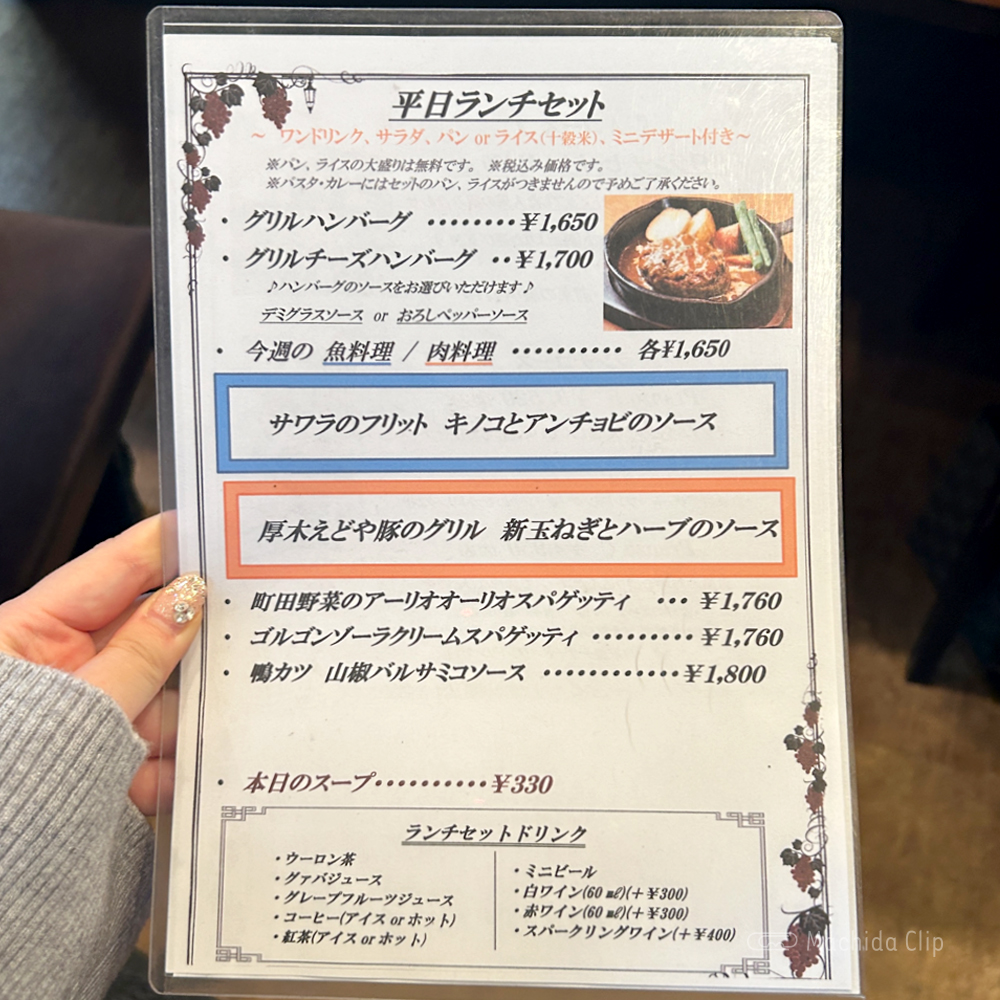 平日ランチセット
～ ワンドリンク、サラダ、パン or ライス(十穀米)、ミニデザート付き～
※パン、ライスの大盛りは無料です。 ※税込み価格です。
※パスタ・カレーにはセットのパン、ライスがつきませんので予めご了承ください。
・ グリルハンバーグ ・・・・・・・・¥1,650
・ グリルチーズハンバーグ ・・¥1,700
♪ハンバーグのソースをお選びいただけます♪
デミグラスソース or おろしペッパーソース
・ 今週の 魚料理 / 肉料理 ・・・・・・・・・・ 各¥1,650
サワラのフリット キノコとアンチョビのソース
厚木えどや豚のグリル 新玉ねぎとハーブのソース
・ 町田野菜のアーリオオーリオスパゲッティ ・・・ ¥1,760
・ ゴルゴンゾーラクリームスパゲッティ ・・・・・・・・・ ¥1,760
・ 鴨カツ 山椒バルサミコソース ・・・・・・・・・・・・¥1,800
・ 本日のスープ・・・・・・・・・・¥330
ランチセットドリンク
・ウーロン茶
・グァバジュース
・グレープフルーツジュース
・コーヒー(アイス or ホット)
・紅茶(アイス or ホット)
・ミニビール
・白ワイン(60㎖)(+¥300)
・赤ワイン(60㎖)(+¥300)
・スパークリングワイン(+¥400)
Machida Clip